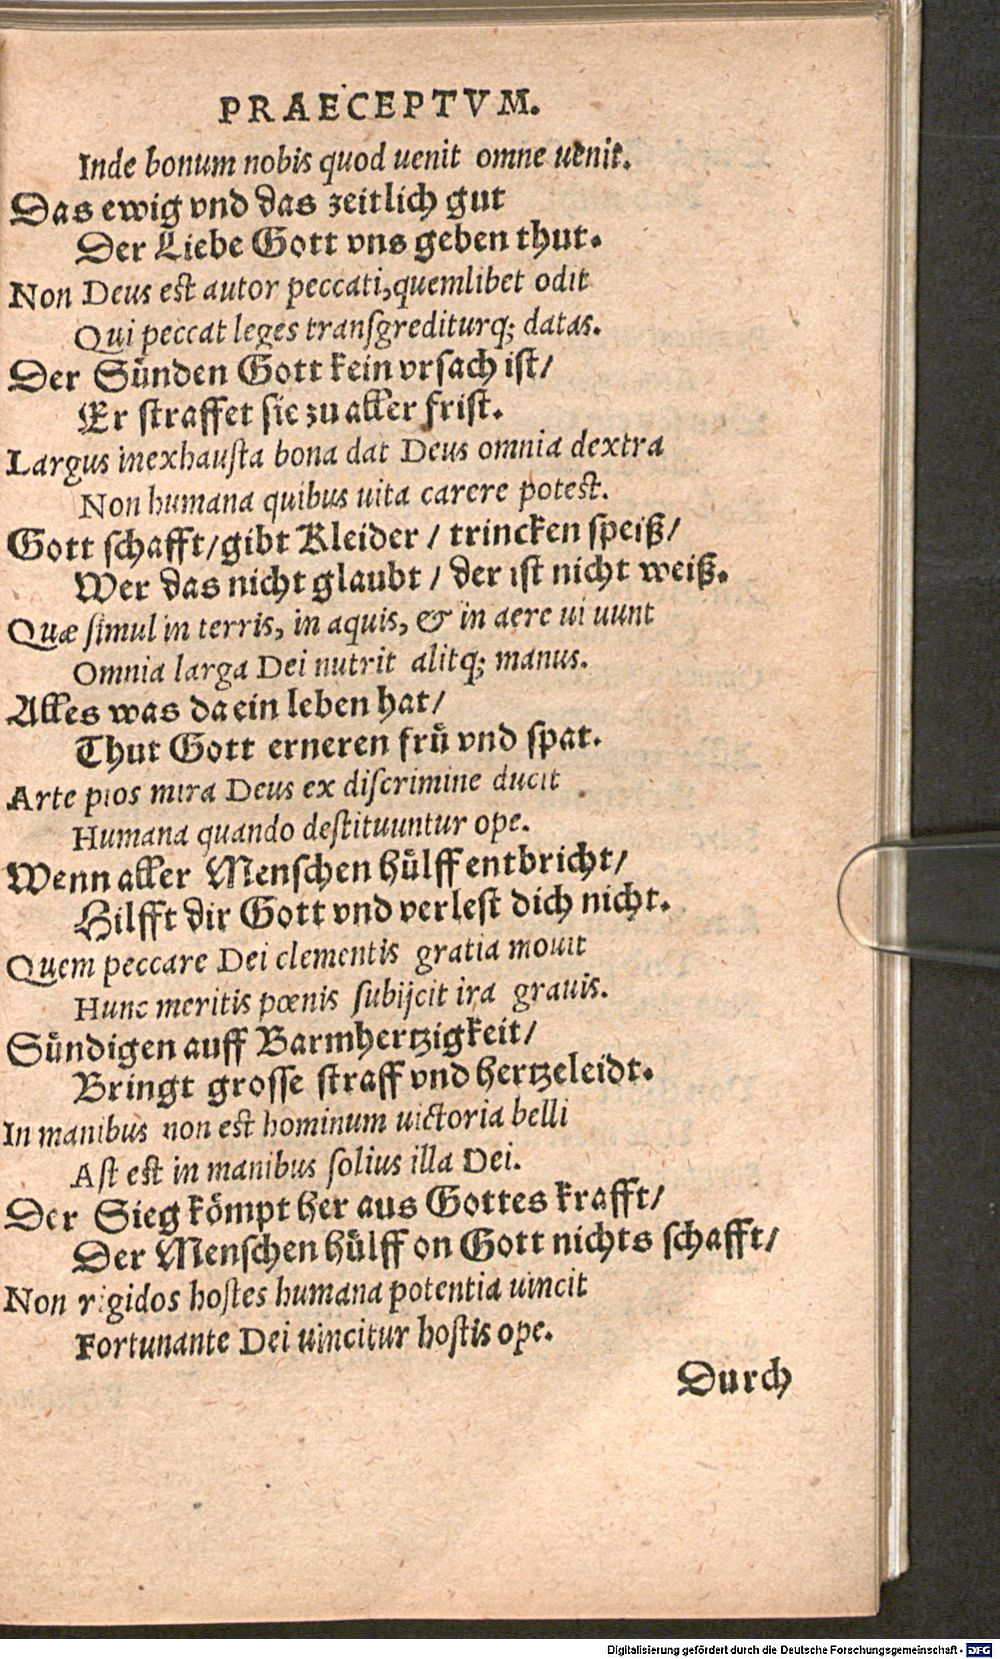 PRAECEPTVM.
Inde bonum nobis quod uenit omne uenit.
Das ewig vnd das zeitlich gut
Der Liebe Gott vns geben thut.
Non Deus est autor peccati, quemlibet odit
Qui peccat leges transgrediturq; datas.
Der Sünden Gott kein vrsach ist/
Er straffet sie zu aller frist.
Largus inexhausta bona dat Deus omnia dextra
Non humana quibus uita carere potest.
Gott schafft/gibt Kleider / trincken speiß/
Wer das nicht glaubt / der ist nicht weiß.
Quæ simul in terris, in aquis, & in aere ui uunt
Omnia larga Dei nutrit alitq; manus.
Alles was da ein leben hat/
Thut Gott erneren frü vnd spat.
Arte pios mira Deus ex discrimine ducit
Humana quando destituuntur ope.
Wenn aller Menschen hülff entbricht/
Hilfft dir Gott vnd verlest dich nicht.
Quem peccare Dei clementis gratia mouit
Hunc meritis pœnis subijcit ira grauis.
Sündigen auff Barmhertzigkeit/
Bringt grosse straff vnd hertzeleidt.
In manibus non est hominum uictoria belli
Ast est in manibus solius illa Dei.
Der Sieg kömpt her aus Gottes krafft/
Der Menschen hülff on Gott nichts schafft/
Non rigidos hostes humana potentia uincit
Fortunante Dei uincitur hostis ope.
Durch
Digitalisierung gefördert durch die Deutsche Forschungsgemeinschaft - DFG